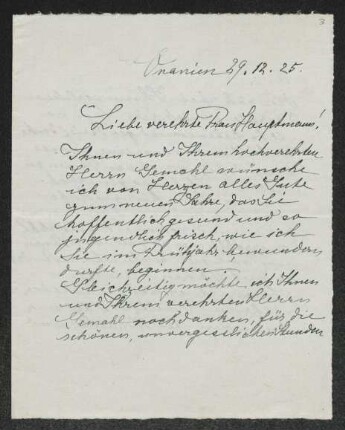 Oranien 29.12.25.
Liebe verehrte Frau Hauptmann!
Ihnen und Ihrem hochverehrten
Herrn Gemahl wünsche
ich von Herzen alles Gute
zum neuen Jahre, das Sie
hoffentlich gesund und so
jugendlich frisch, wie ich
Sie im Frühjahr bewundern
durfte, beginnen.
Gleichzeitig möchte ich Ihnen
und Ihrem verehrten Herrn
Gemahl noch danken, für die
schönen, unvergesslichen Stunden